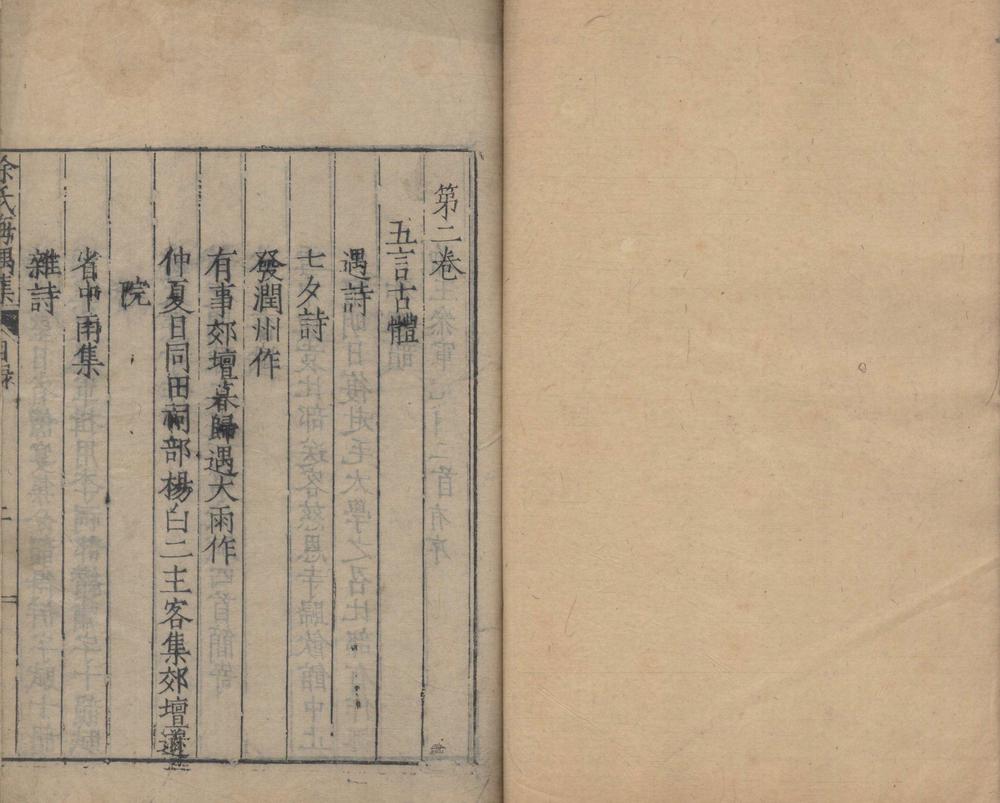 第二卷
五言古體
遇詩
七夕詩
發潤州作
有事郊壇暮歸遇大雨作
仲夏日同田祠部楊白二主客集郊壇道
院
省中雨集
雜詩
徐氏海隅集 目錄 二